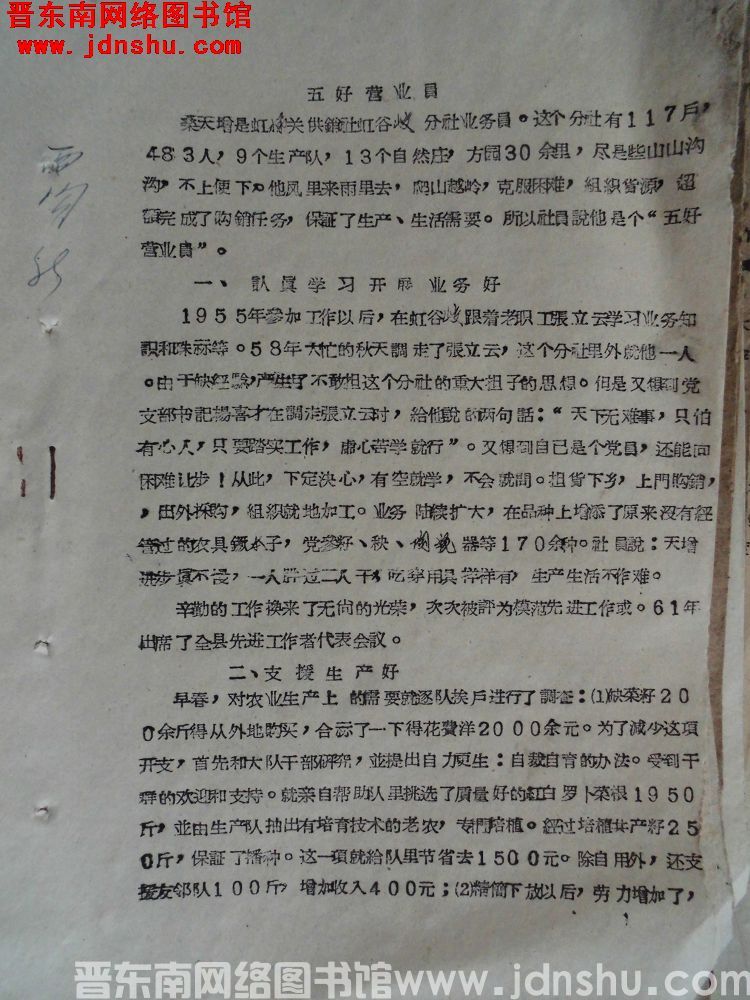 晋东南网络图书馆
www.jdnshu.com
五好营业員
桑天增是虹梯关供銷社虹谷 分社业务員。这个分社有117戶,
483人,9个生产队,13个自然庄,方园30余里,尽是些山山沟
沟,不上便下。他风里来雨里去,爬山越岭,克服困难,組织貨源,超
額完成了购銷任务,保証了生产、生活需要。所以社員說他是个“五好
营业員”。
一、認眞学习开展业务好
1955年参加工作以后,在虹谷 跟着老职工張立云学习业务知
識和珠祘等。58年大忙的秋天調走了張立云,这个分社里外就他一人
。由于缺經驗,产生了不敢担这个分社的重大担子的思想。但是又想到党
支部书記楊喜才在調走張立云时,給他說的两句話:“天下无难事,只怕
有心人,只要踏实工作,虚心苦学就行”。又想到自己是个党員,还能向
困难让步!从此,下定决心,有空就学,不会就問。担貨下乡,上門购銷,
,田外採购,組织就地加工。业务 陆续扩大,在品种上增添了原来没有經
管过的农具鐝 子,党参籽、秧、 器等170余种。社員說:天增
进步眞不慢,一人胜过二人干,吃穿用具样样有,生产生活不作难。
辛勤的工作換来了无尚的光荣,次次被評为模范先进工作或。61年
出席了全县先进工作者代表会議。
二、支援生产好
早春,对农业生产上 的需要就逐队挨戶进行了調查:(1)缺菜籽20
0余斤得从外地购买,合祘了一下得花費洋2000余元。为了減少这項
开支,首先和大队干部研究,並提出自力更生:自栽自育的办法。受到干
群的欢迎和支持。就亲自帮助队里挑选了质量好的紅白罗卜菜根1950
斤,並由生产队抽出有培育技术的老农,专門培植。經过培植共产籽25
0斤,保証了播种。这一項就給队里节省去1500元。除自用外,还支
援友邻队100斤,增加收入400元;(2)精简下放以后,劳力增加了,
晋东南网络图书馆www.jdnshu.com